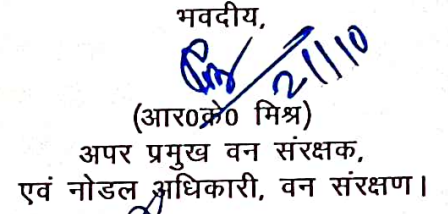 भवदीय,
21/10
(आर0के0 मिश्र)
अपर प्रमुख वन संरक्षक,
एवं नोडल अधिकारी, वन संरक्षण।